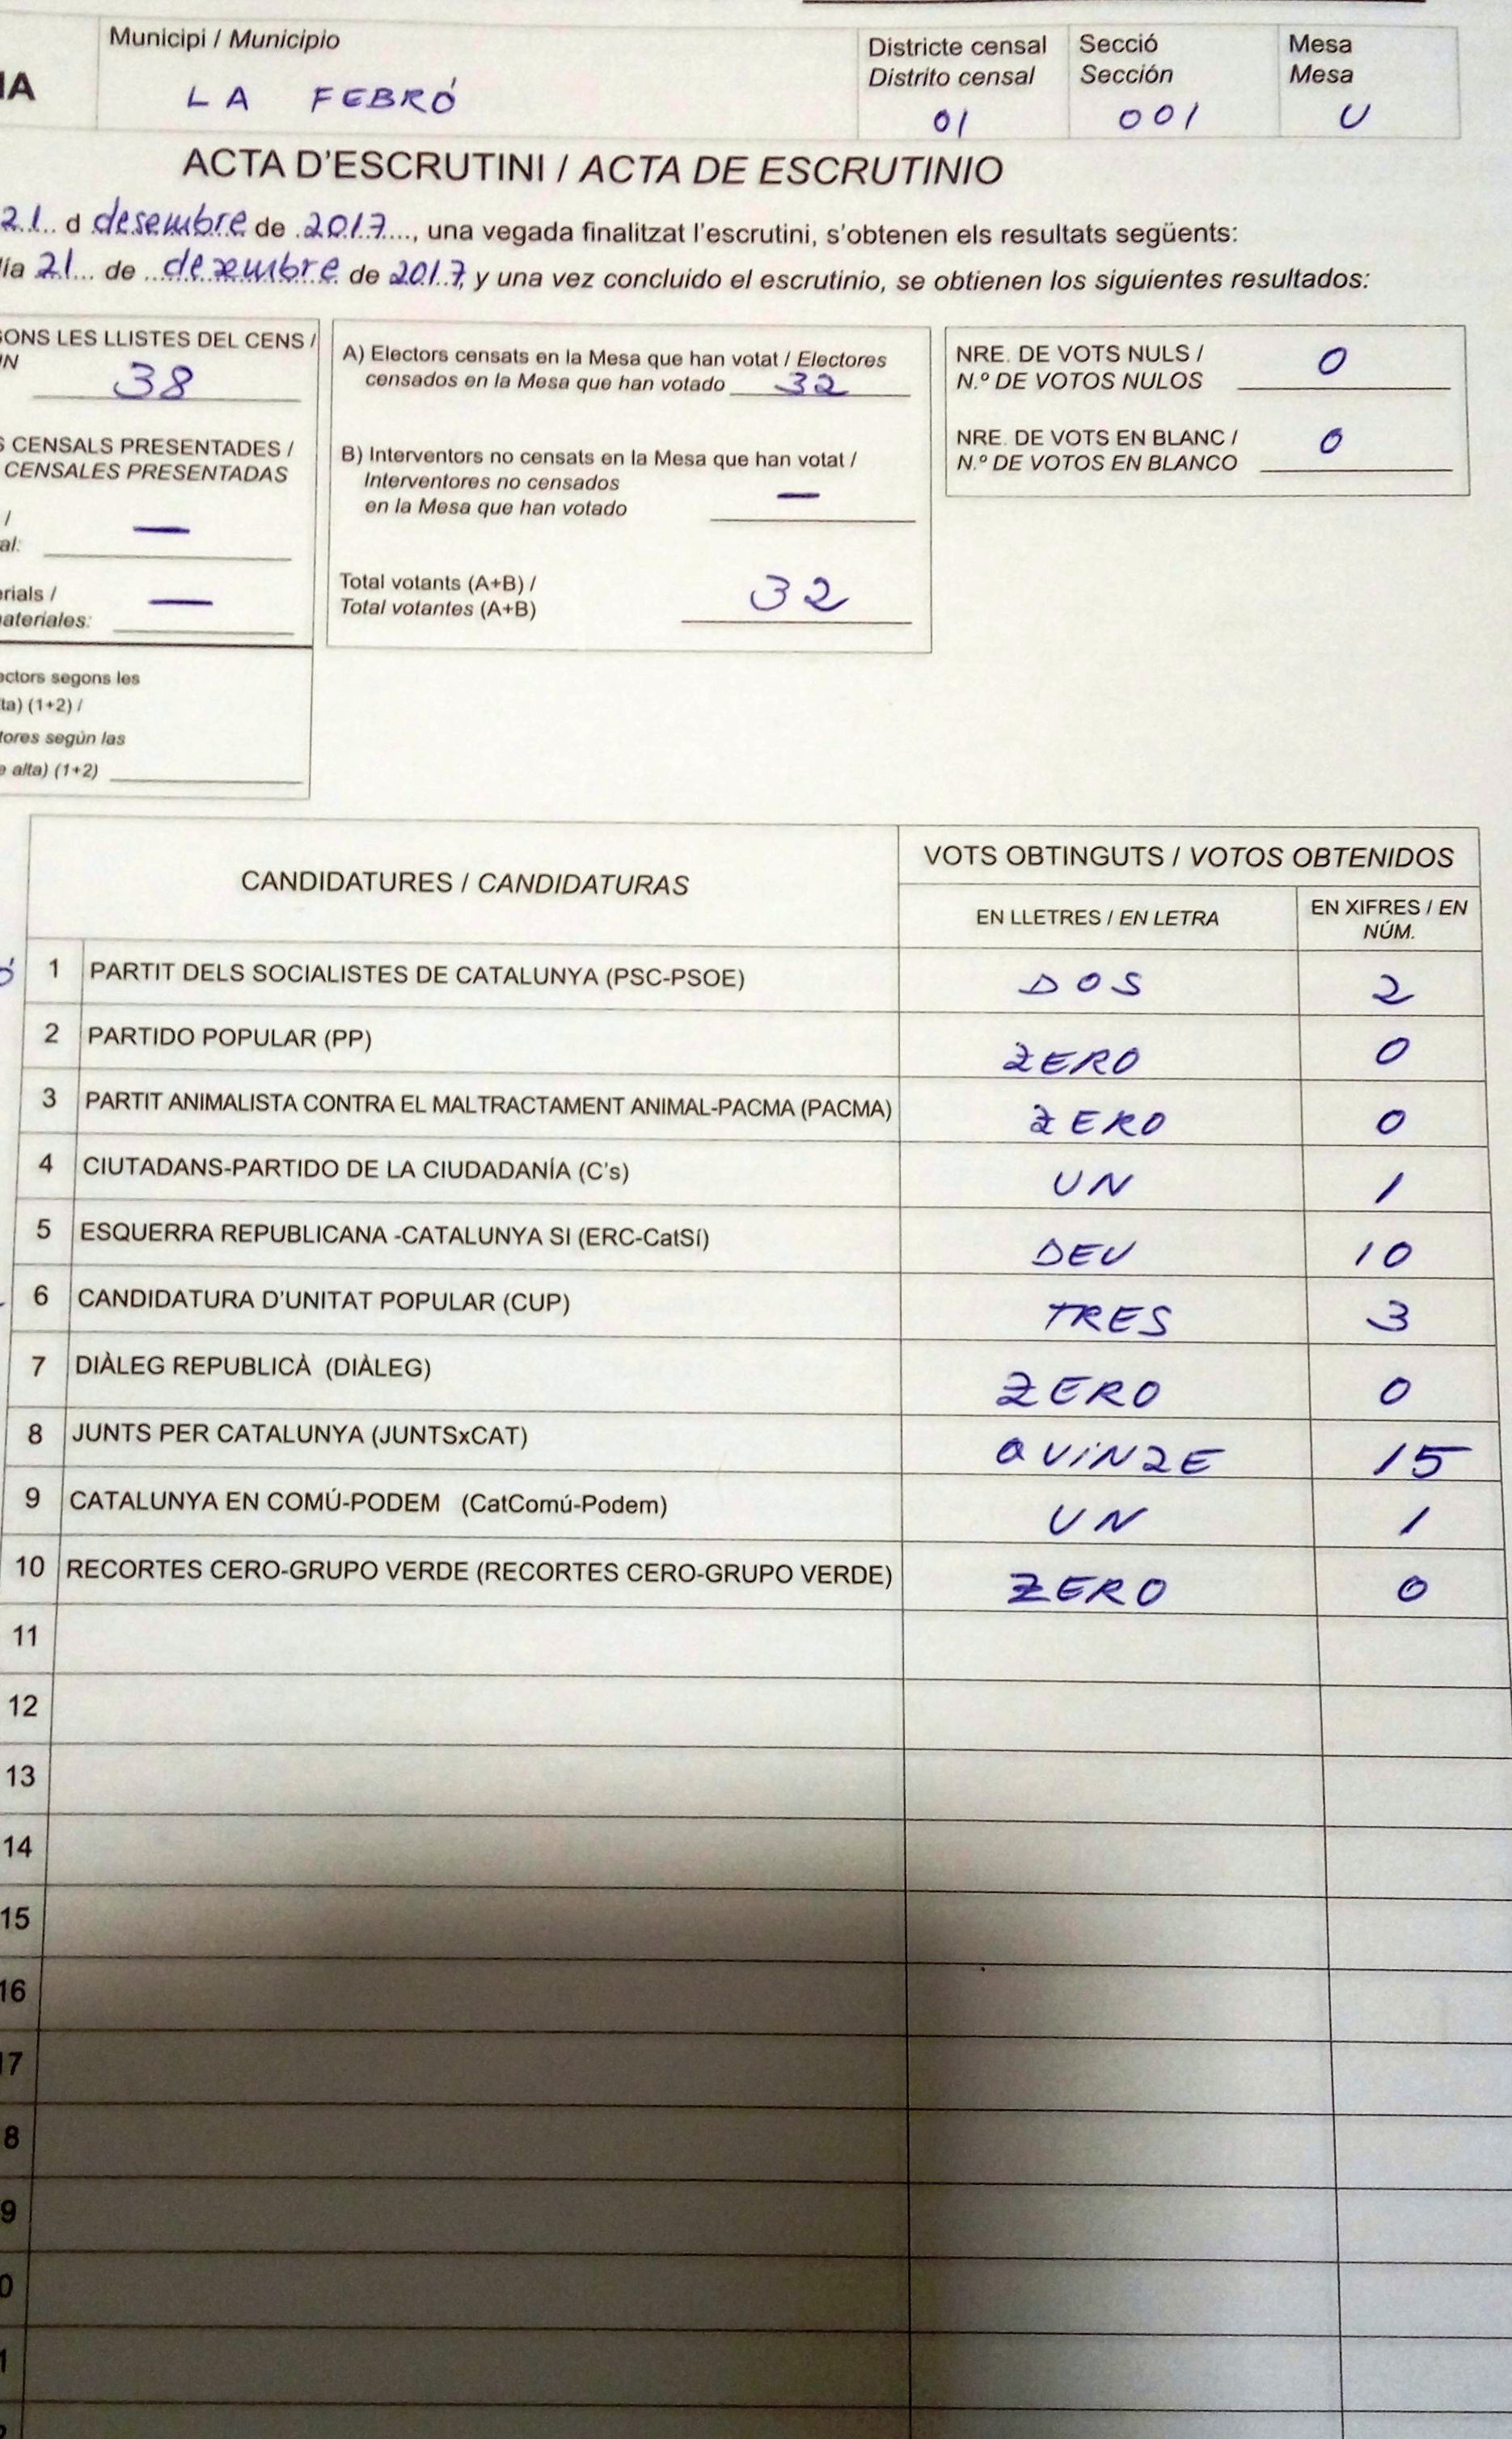 Municipi / Municipio
Districte censal Secció Mesa
Distrito censal Sección Mesa
IA LA FEBRÓ
01 001 U
ACTA D'ESCRUTINI / ACTA DE ESCRUTINIO
21 d desembre de 2017, una vegada finalitzat l'escrutini, s'obtenen els resultats següents:
ía 21 de dezembre de 2017, y una vez concluido el escrutinio, se obtienen los siguientes resultados:
GONS LES LLISTES DEL CENS /
ÚN
38
S CENSALS PRESENTADES /
CENSALES PRESENTADAS
/
—
al:
erials /
—
materiales:
ectors segons les
lta) (1+2) /
tores según las
e alta) (1+2)
A) Electors censats en la Mesa que han votat / Electores
censados en la Mesa que han votado 32
B) Interventors no censats en la Mesa que han votat /
Interventores no censados
en la Mesa que han votado —
Total votants (A+B) /
Total votantes (A+B) 32
NRE. DE VOTS NULS /
N.º DE VOTOS NULOS 0
NRE. DE VOTS EN BLANC /
N.º DE VOTOS EN BLANCO 0
CANDIDATURES / CANDIDATURAS
VOTS OBTINGUTS / VOTOS OBTENIDOS
EN LLETRES / EN LETRA
EN XIFRES / EN
NÚM.
1 PARTIT DELS SOCIALISTES DE CATALUNYA (PSC-PSOE) DOS 2
2 PARTIDO POPULAR (PP) ZERO 0
3 PARTIT ANIMALISTA CONTRA EL MALTRACTAMENT ANIMAL-PACMA (PACMA) ZERO 0
4 CIUTADANS-PARTIDO DE LA CIUDADANÍA (C's) UN 1
5 ESQUERRA REPUBLICANA -CATALUNYA SI (ERC-CatSí) DEU 10
6 CANDIDATURA D'UNITAT POPULAR (CUP) TRES 3
7 DIÀLEG REPUBLICÀ (DIÀLEG) ZERO 0
8 JUNTS PER CATALUNYA (JUNTSxCAT) QUINZE 15
9 CATALUNYA EN COMÚ-PODEM (CatComú-Podem) UN 1
10 RECORTES CERO-GRUPO VERDE (RECORTES CERO-GRUPO VERDE) ZERO 0
11
12
13
14
15
16
17
8
9
0
1